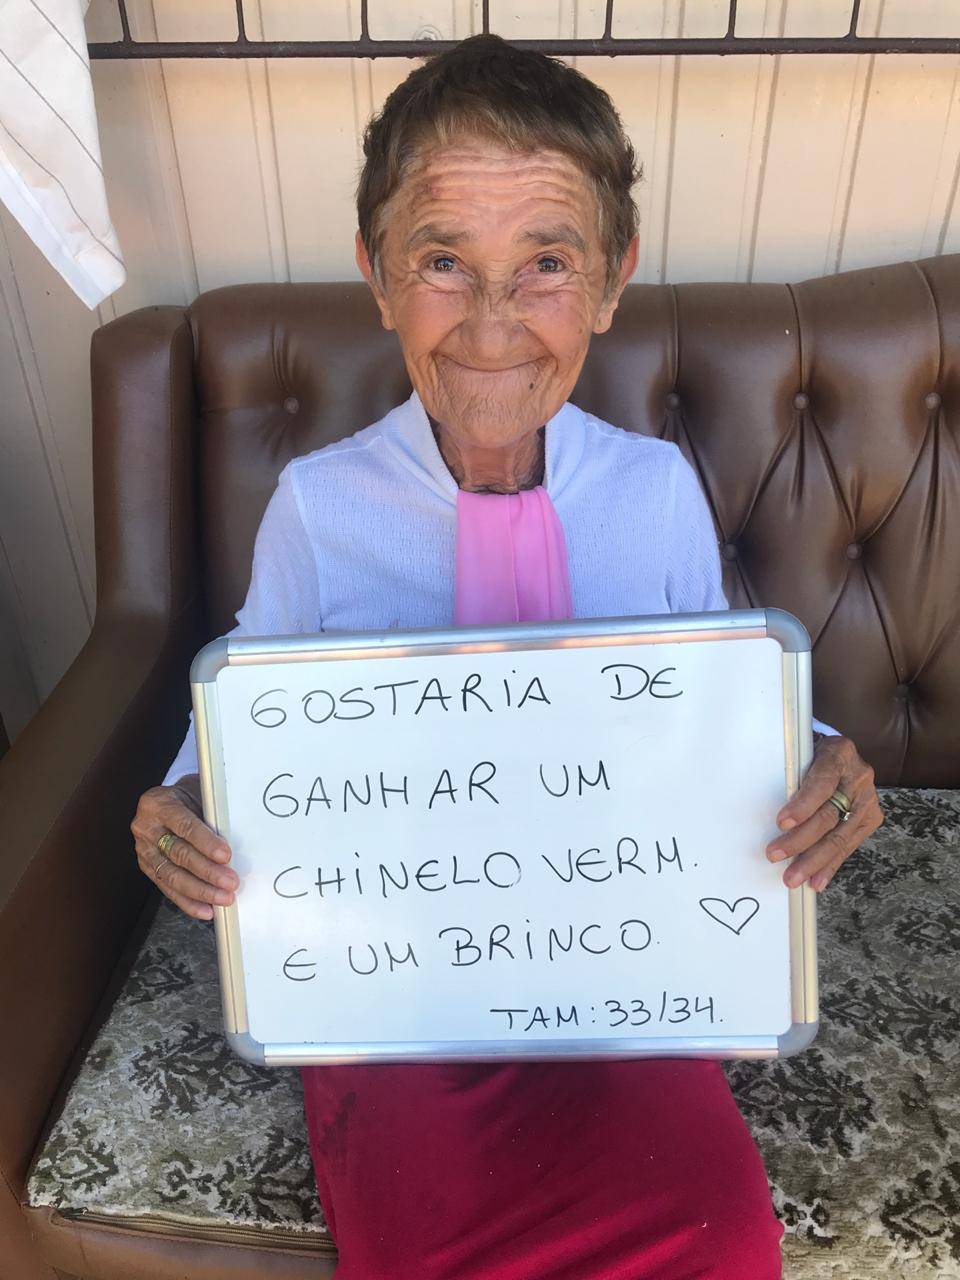 GOSTARiA DE
GANHAR UM
CHiNELO VERM.
E UM BRiNCO. ♡
TAM: 33/34.